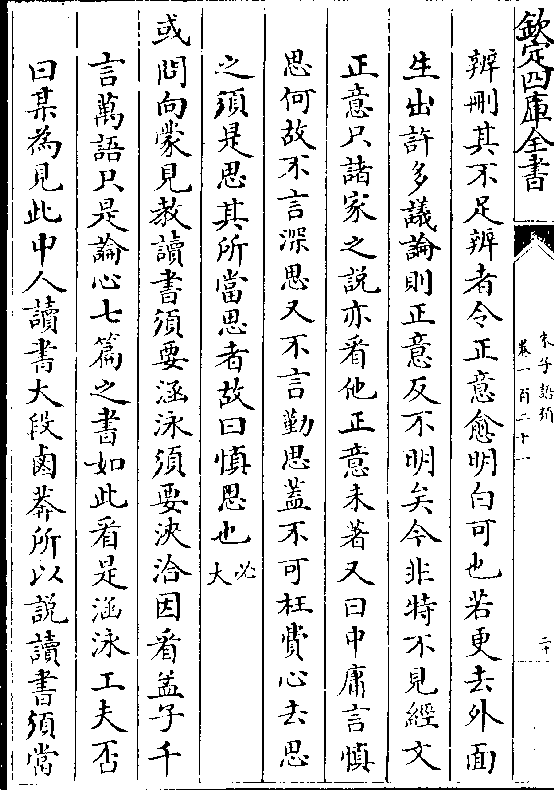 欽定四庫全書
朱子語類
卷一百二十一
二十
辨刪其不足辨者令正意愈明白可也若更去外面
生出許多議論則正意反不明矣今非特不見經文
正意只諸家之說亦看他正意未著又曰中庸言慎
思何故不言深思又不言勤思蓋不可枉費心去思
之須是思其所當思者故曰慎思也必大
或問向蒙見教讀書須要涵泳須要浹洽因看孟子千
言萬語只是論心七篇之書如此看是涵泳工夫否
曰某為見此中人讀書大段鹵莽所以說讀書須當